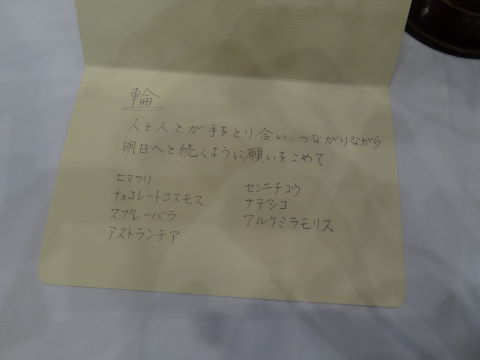 輪
人と人とが手をとり合い、つながりながら
明日へと続くように願いをこめて
ヒマワリ
チョコレートコスモス
スプレーバラ
アストランチア
センニチコウ
ナデシコ
アルケミラモリス